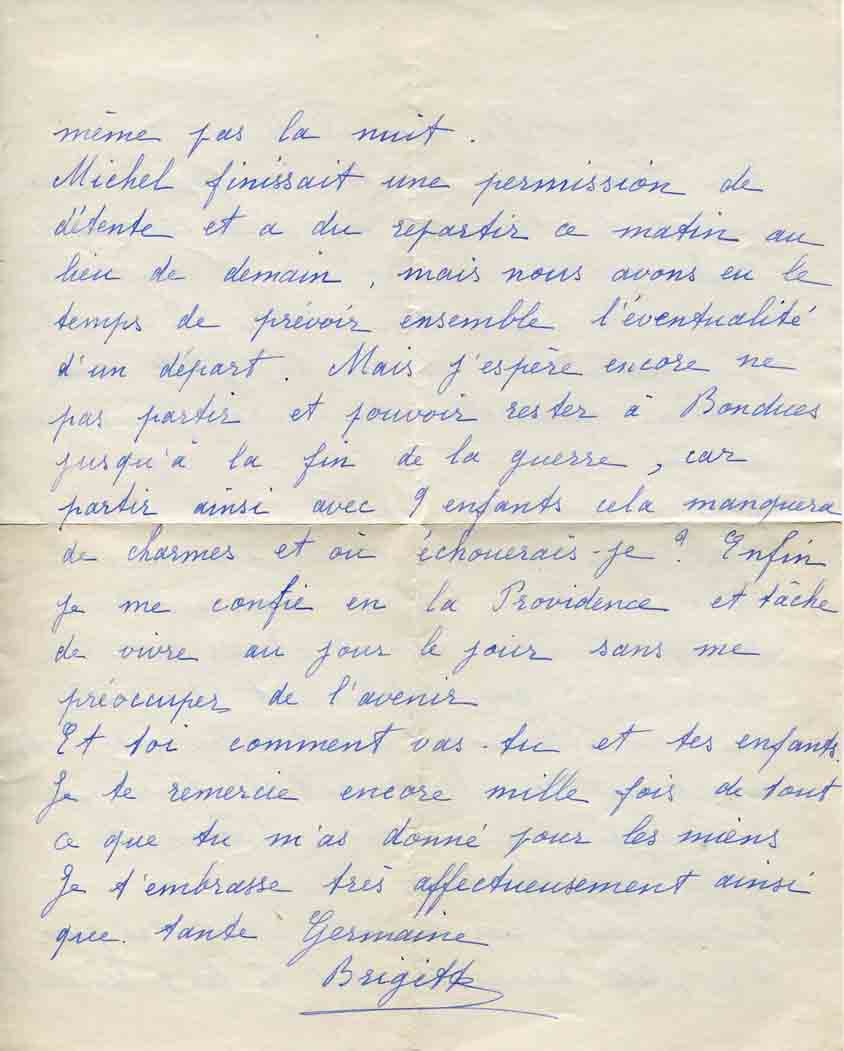 même pas la nuit.
Michel finissait une permission de
détente et a du repartir ce matin au
lieu de demain, mais nous avons eu le
temps de prévoir ensemble l'éventualité
d'un départ. Mais j'espère encore ne
pas partir et pouvoir rester à Bondues
jusqu'à la fin de la guerre, car
partir ainsi avec 9 enfants cela manquera
de charmes et où échouerais-je? Enfin
je me confie en la Providence et tâche
de vivre au jour le jour sans me
préoccuper de l'avenir
Et toi comment vas-tu et tes enfants.
Je te remercie encore mille fois de tout
ce que tu m'as donné pour les miens
Je t'embrasse très affectueusement ainsi
que tante Germaine
Brigitte